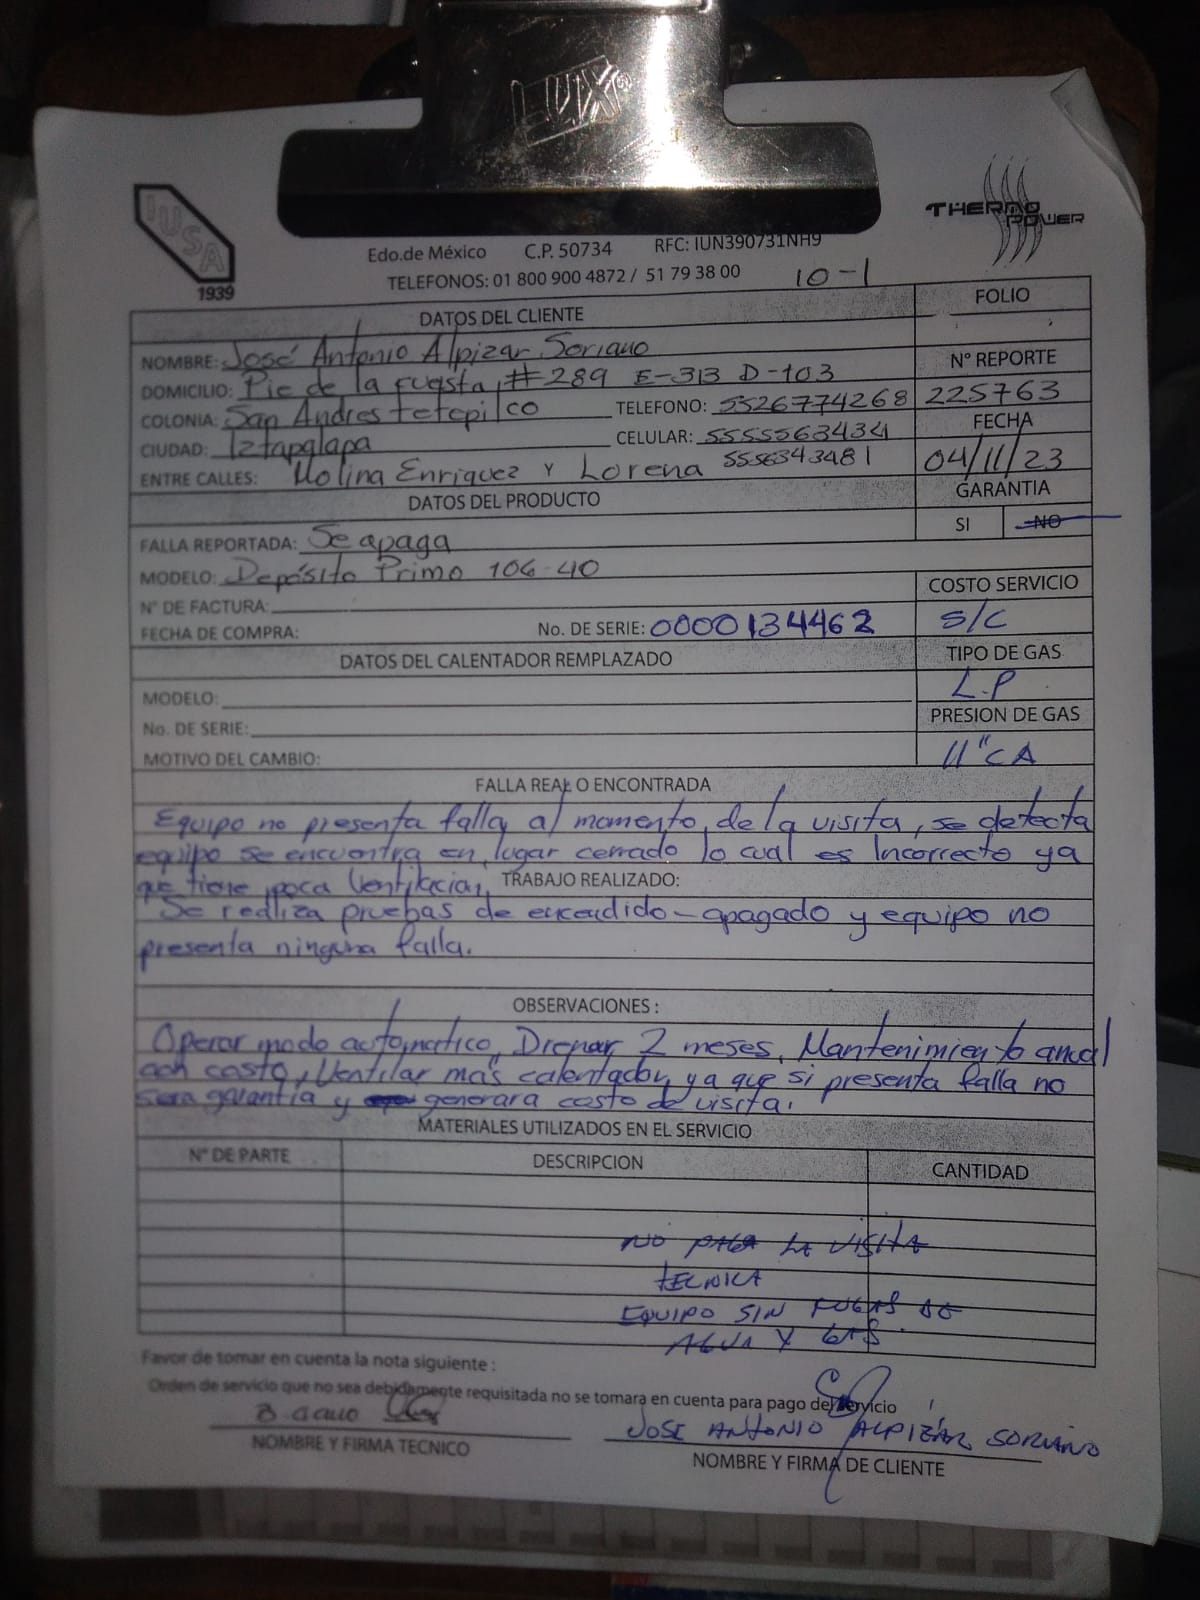 LUX®
IUSA
1939
THERMO
POWER
Edo.de México C.P. 50734 RFC: IUN390731NH9
TELEFONOS: 01 800 900 4872 / 51 79 38 00
10-1
DATOS DEL CLIENTE
FOLIO
NOMBRE: José Antonio Alpizar Soriano
Nº REPORTE
DOMICILIO: Pie de la cuesta #289 E-313 D-103
225763
COLONIA: San Andres tetepilco TELEFONO: 5526774268
FECHA
CIUDAD: Iztapalapa CELULAR: 5555563434
04/11/23
ENTRE CALLES: Molina Enriquez y Lorena 5556343481
GARANTIA
DATOS DEL PRODUCTO
SI NO
FALLA REPORTADA: Se apaga
MODELO: Depósito Primo 106-40
COSTO SERVICIO
Nº DE FACTURA:
S/C
FECHA DE COMPRA: No. DE SERIE: 0000134462
DATOS DEL CALENTADOR REMPLAZADO
TIPO DE GAS
L.P
MODELO:
PRESION DE GAS
No. DE SERIE:
11" CA
MOTIVO DEL CAMBIO:
FALLA REAL O ENCONTRADA
Equipo no presenta falla al momento de la visita, se detecta
equipo se encuentra en lugar cerrado lo cual es Incorrecto ya
que tiene poca Ventilacion.
TRABAJO REALIZADO:
Se realiza pruebas de encendido-apagado y equipo no
presenta ninguna falla.
OBSERVACIONES :
Operar modo automatico, Drenar 2 meses, Mantenimiento anual
con costo, Ventilar mas calentador, ya que si presenta falla no
sera garantia y generara costo de visita.
MATERIALES UTILIZADOS EN EL SERVICIO
Nº DE PARTE DESCRIPCION CANTIDAD
NO PAGA LA VISITA
TECNICA
EQUIPO SIN FUGAS DE
AGUA Y GAS.
Favor de tomar en cuenta la nota siguiente :
Orden de servicio que no sea debidamente requisitada no se tomara en cuenta para pago del servicio
JOSE ANTONIO ALPIZAR SORIANO
NOMBRE Y FIRMA TECNICO
NOMBRE Y FIRMA DE CLIENTE